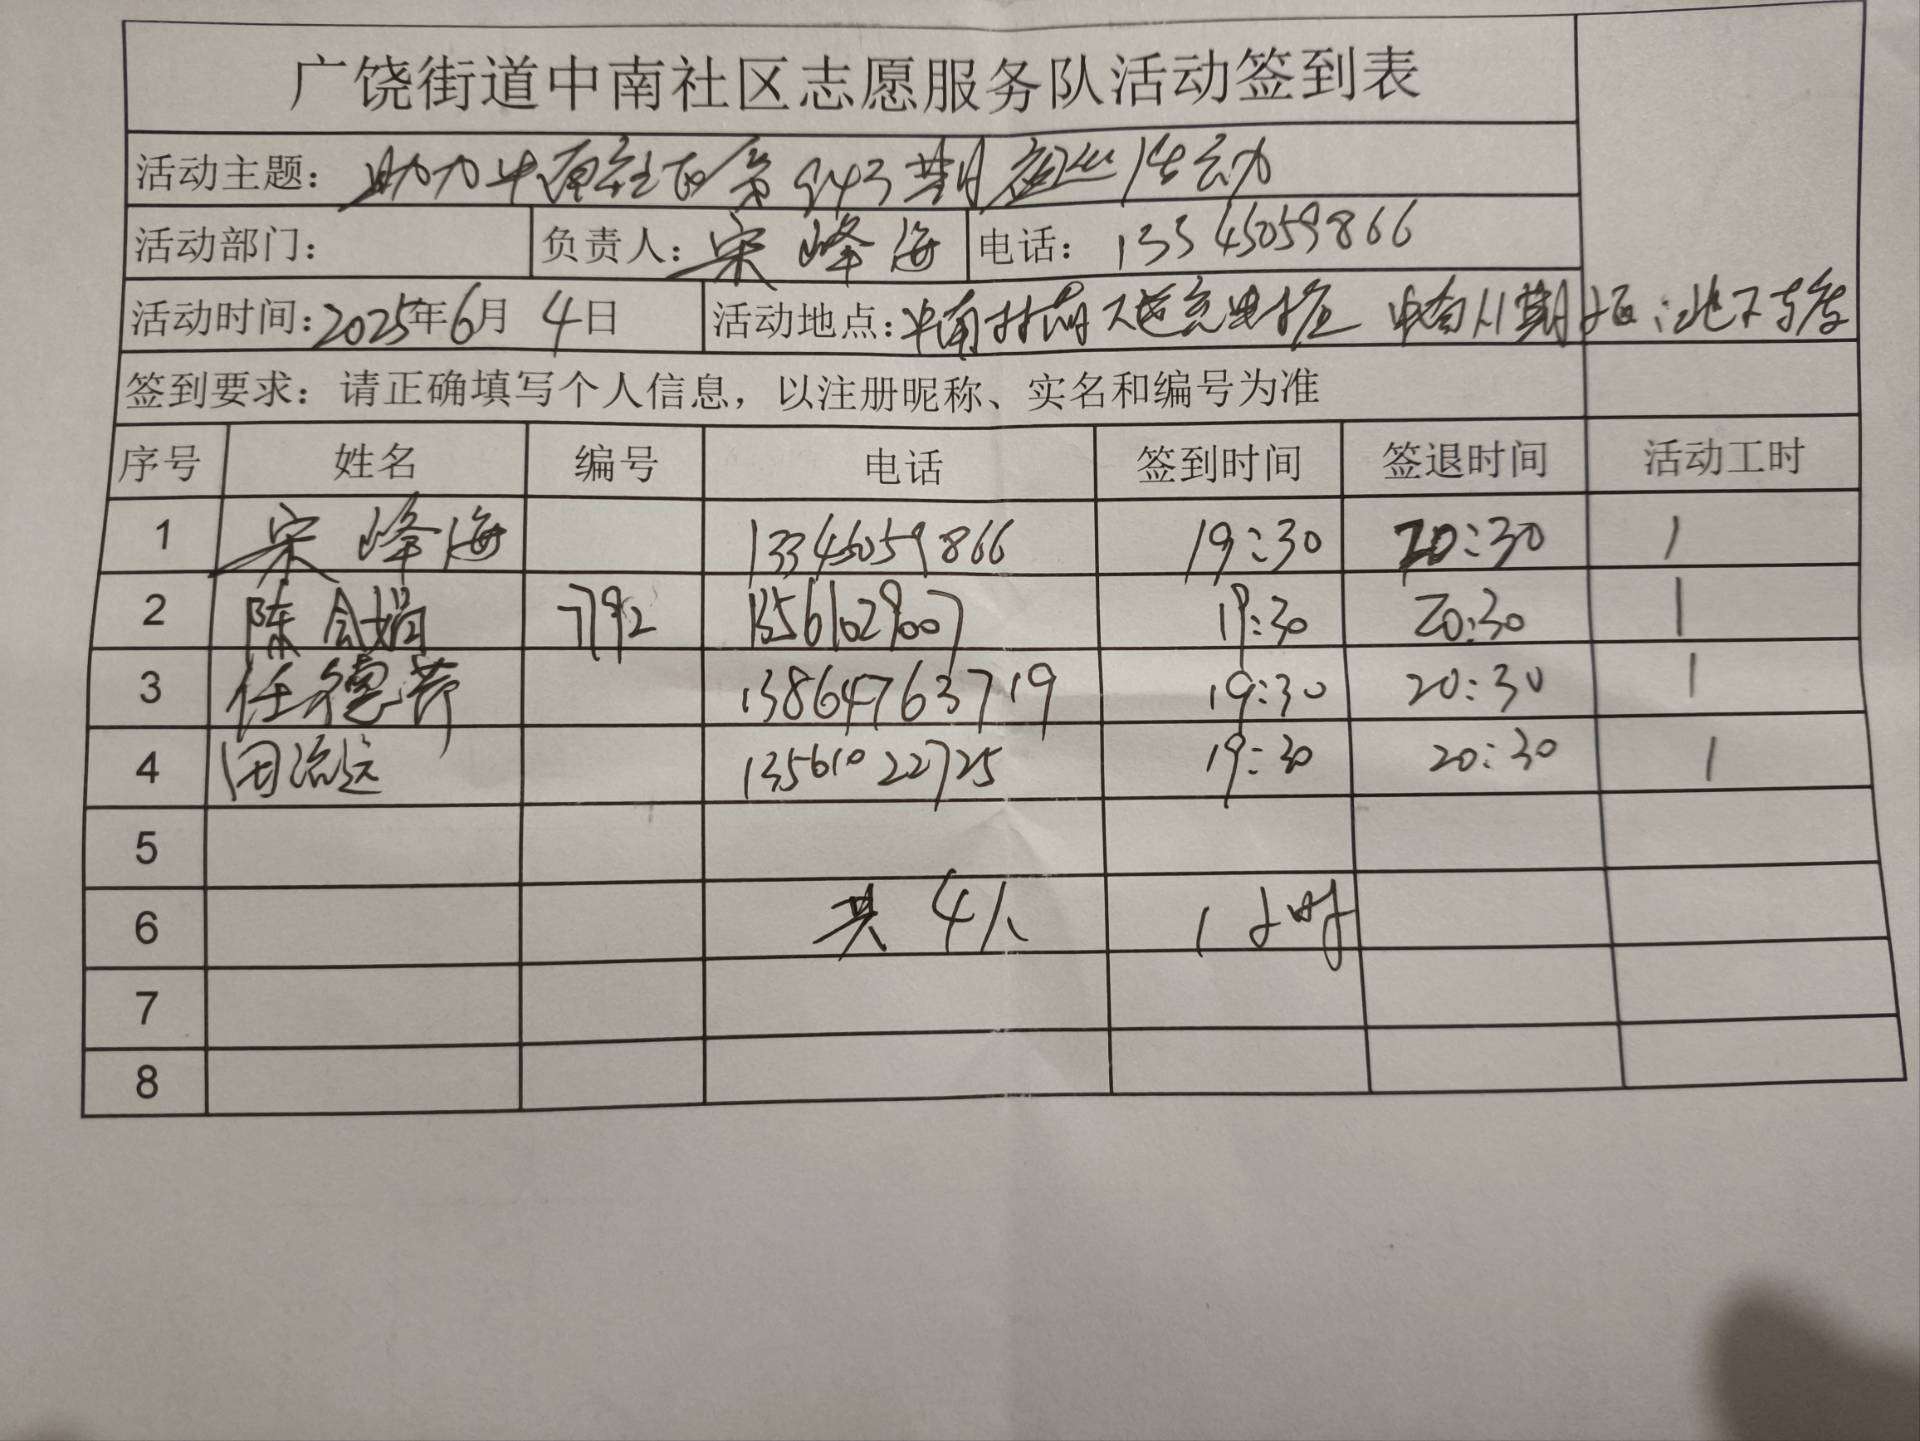 广饶街道中南社区志愿服务队活动签到表
活动主题：助力中南社区第943期夜巡活动
活动部门： 负责人：宋峰海 电话：13345059866
活动时间：2025年6月4日 活动地点：中南 地下车库
签到要求：请正确填写个人信息，以注册昵称、实名和编号为准
序号 姓名 编号 电话 签到时间 签退时间 活动工时
1 宋峰海 13345059866 19:30 20:30 1
2 陈会娟 7792 13561029007 19:30 20:30 1
3 任德芹 13864763719 19:30 20:30 1
4 13561022725 19:30 20:30 1
5
6 共4人 1小时
7
8